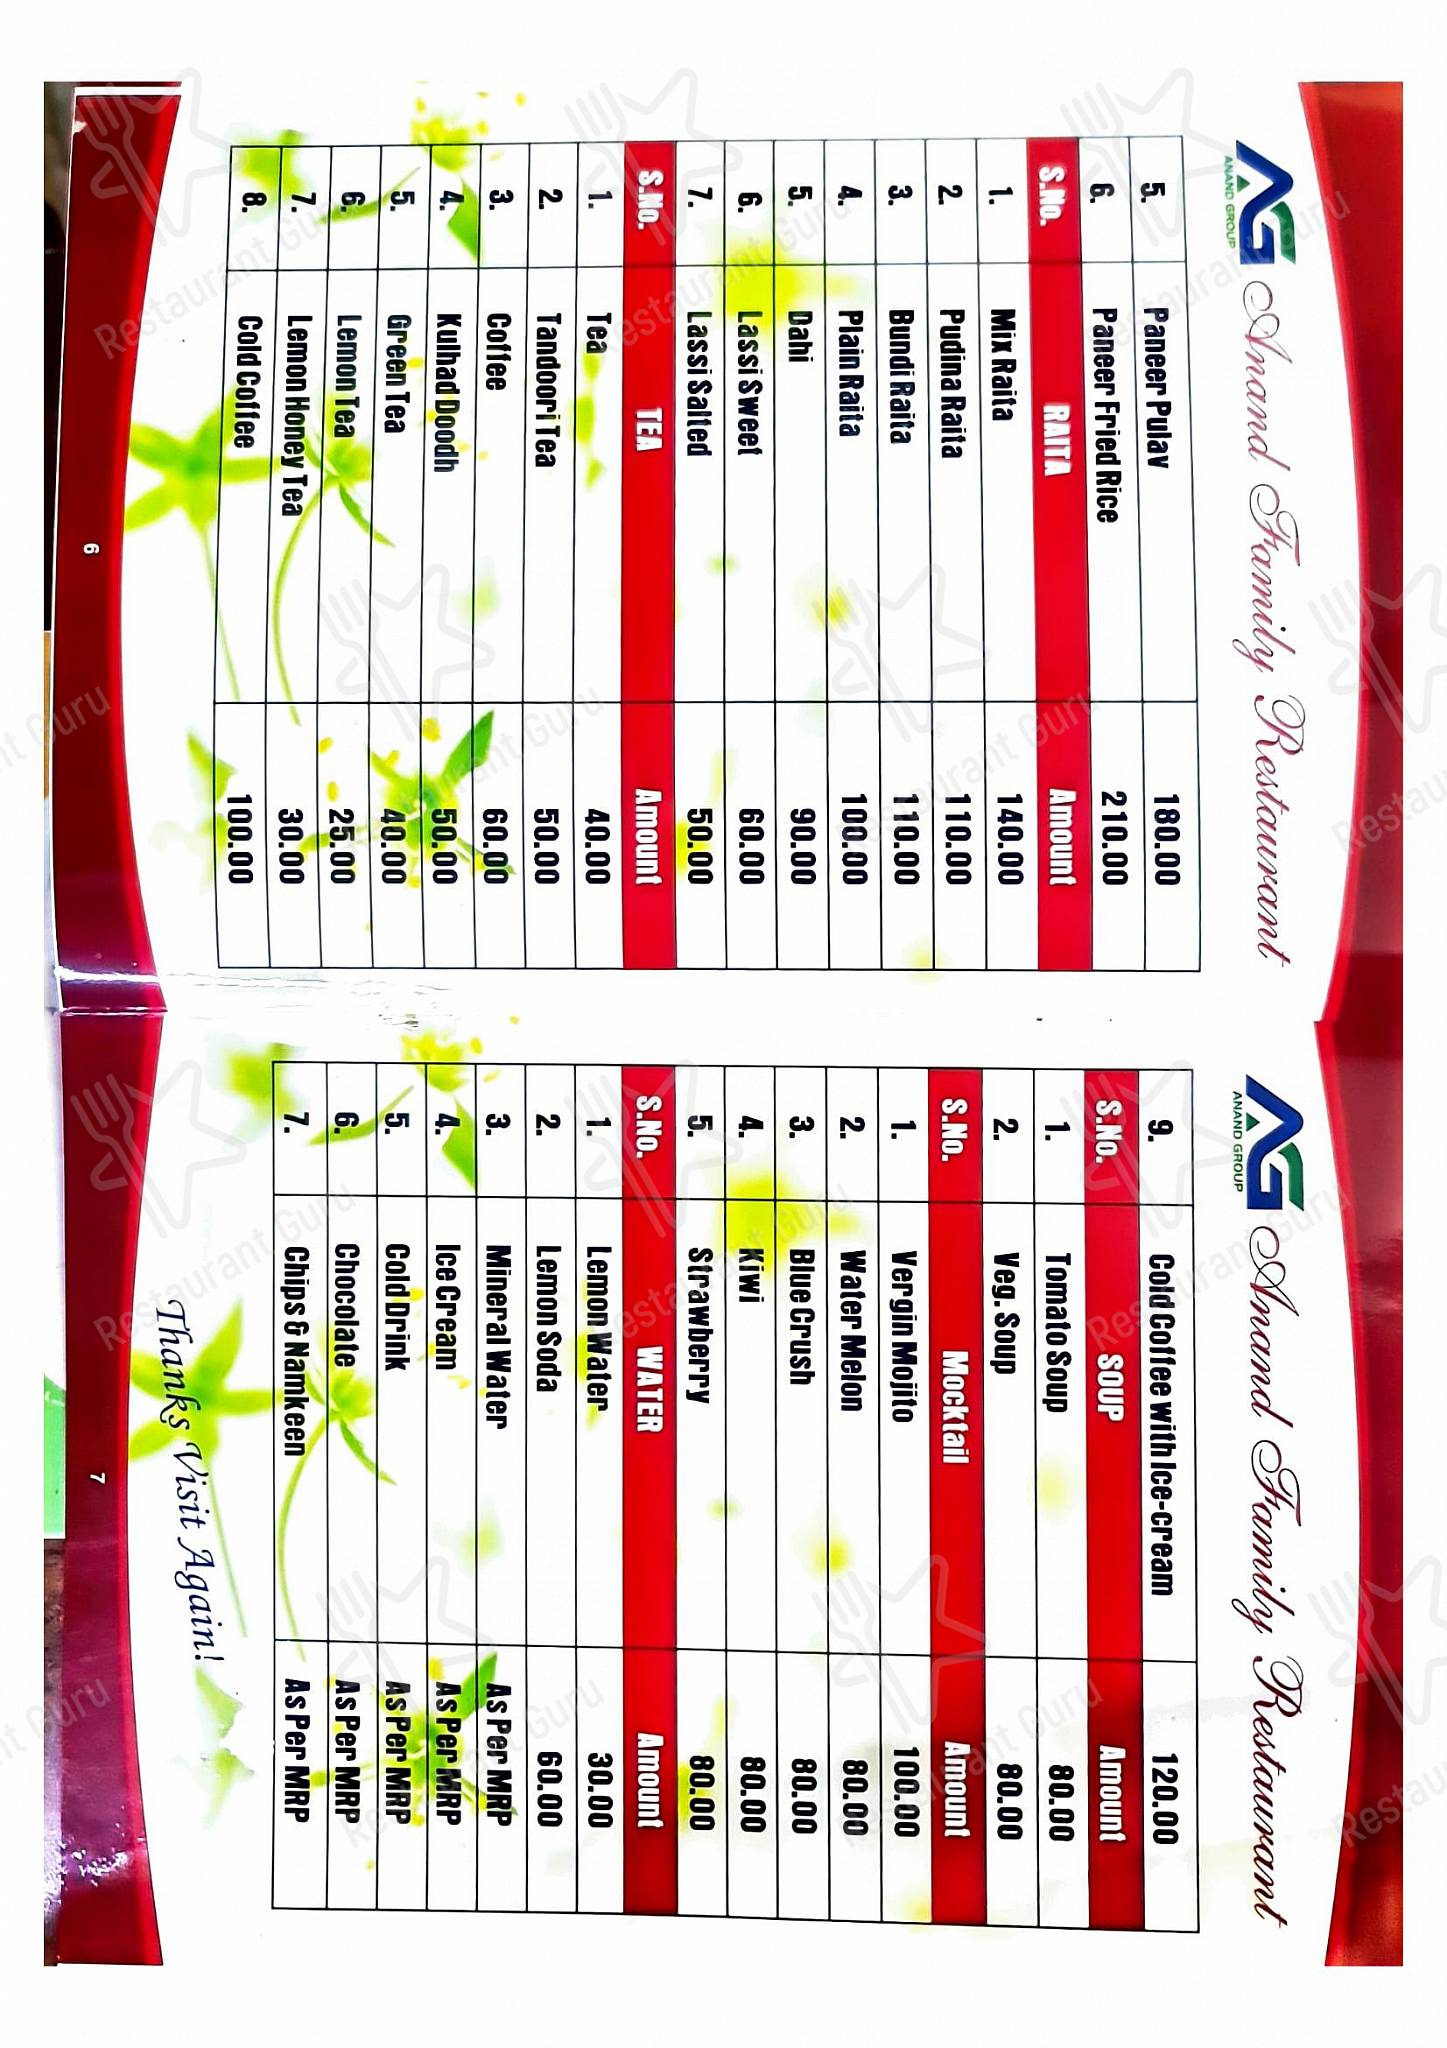 AG
ANAND GROUP
Anand Family Restaurant
5. Paneer Pulav 180.00
6. Paneer Fried Rice 210.00
S.No. RAITA Amount
1. Mix Raita 140.00
2. Pudina Raita 110.00
3. Bundi Raita 110.00
4. Plain Raita 100.00
5. Dahi 90.00
6. Lassi Sweet 60.00
7. Lassi Salted 50.00
S.No. TEA Amount
1. Tea 40.00
2. Tandoori Tea 50.00
3. Coffee 60.00
4. Kulhad Doodh 50.00
5. Green Tea 40.00
6. Lemon Tea 25.00
7. Lemon Honey Tea 30.00
8. Cold Coffee 100.00
6
AG
ANAND GROUP
Anand Family Restaurant
9. Cold Coffee with Ice-cream 120.00
S.No. SOUP Amount
1. Tomato Soup 80.00
2. Veg. Soup 80.00
S.No. Mocktail Amount
1. Vergin Mojito 100.00
2. Water Melon 80.00
3. Blue Crush 80.00
4. Kiwi 80.00
5. Strawberry 80.00
S.No. WATER Amount
1. Lemon Water 30.00
2. Lemon Soda 60.00
3. Mineral Water As Per MRP
4. Ice Cream As Per MRP
5. Cold Drink As Per MRP
6. Chocolate As Per MRP
7. Chips & Namkeen As Per MRP
Thanks Visit Again!
7
Restaurant Guru